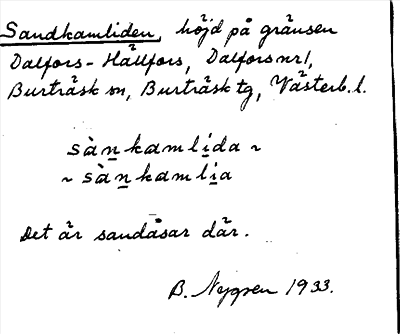 Sandkamliden, höjd på gränsen
Dalfors-Hällfors, Dalfors nr 1,
Burträsk sn, Burträsk tg, Västerb. l.
sàn̲kamli̲da ~
~ sàn̲kamli̲a
Det är sandåsar där.
B. Nygren 1933.